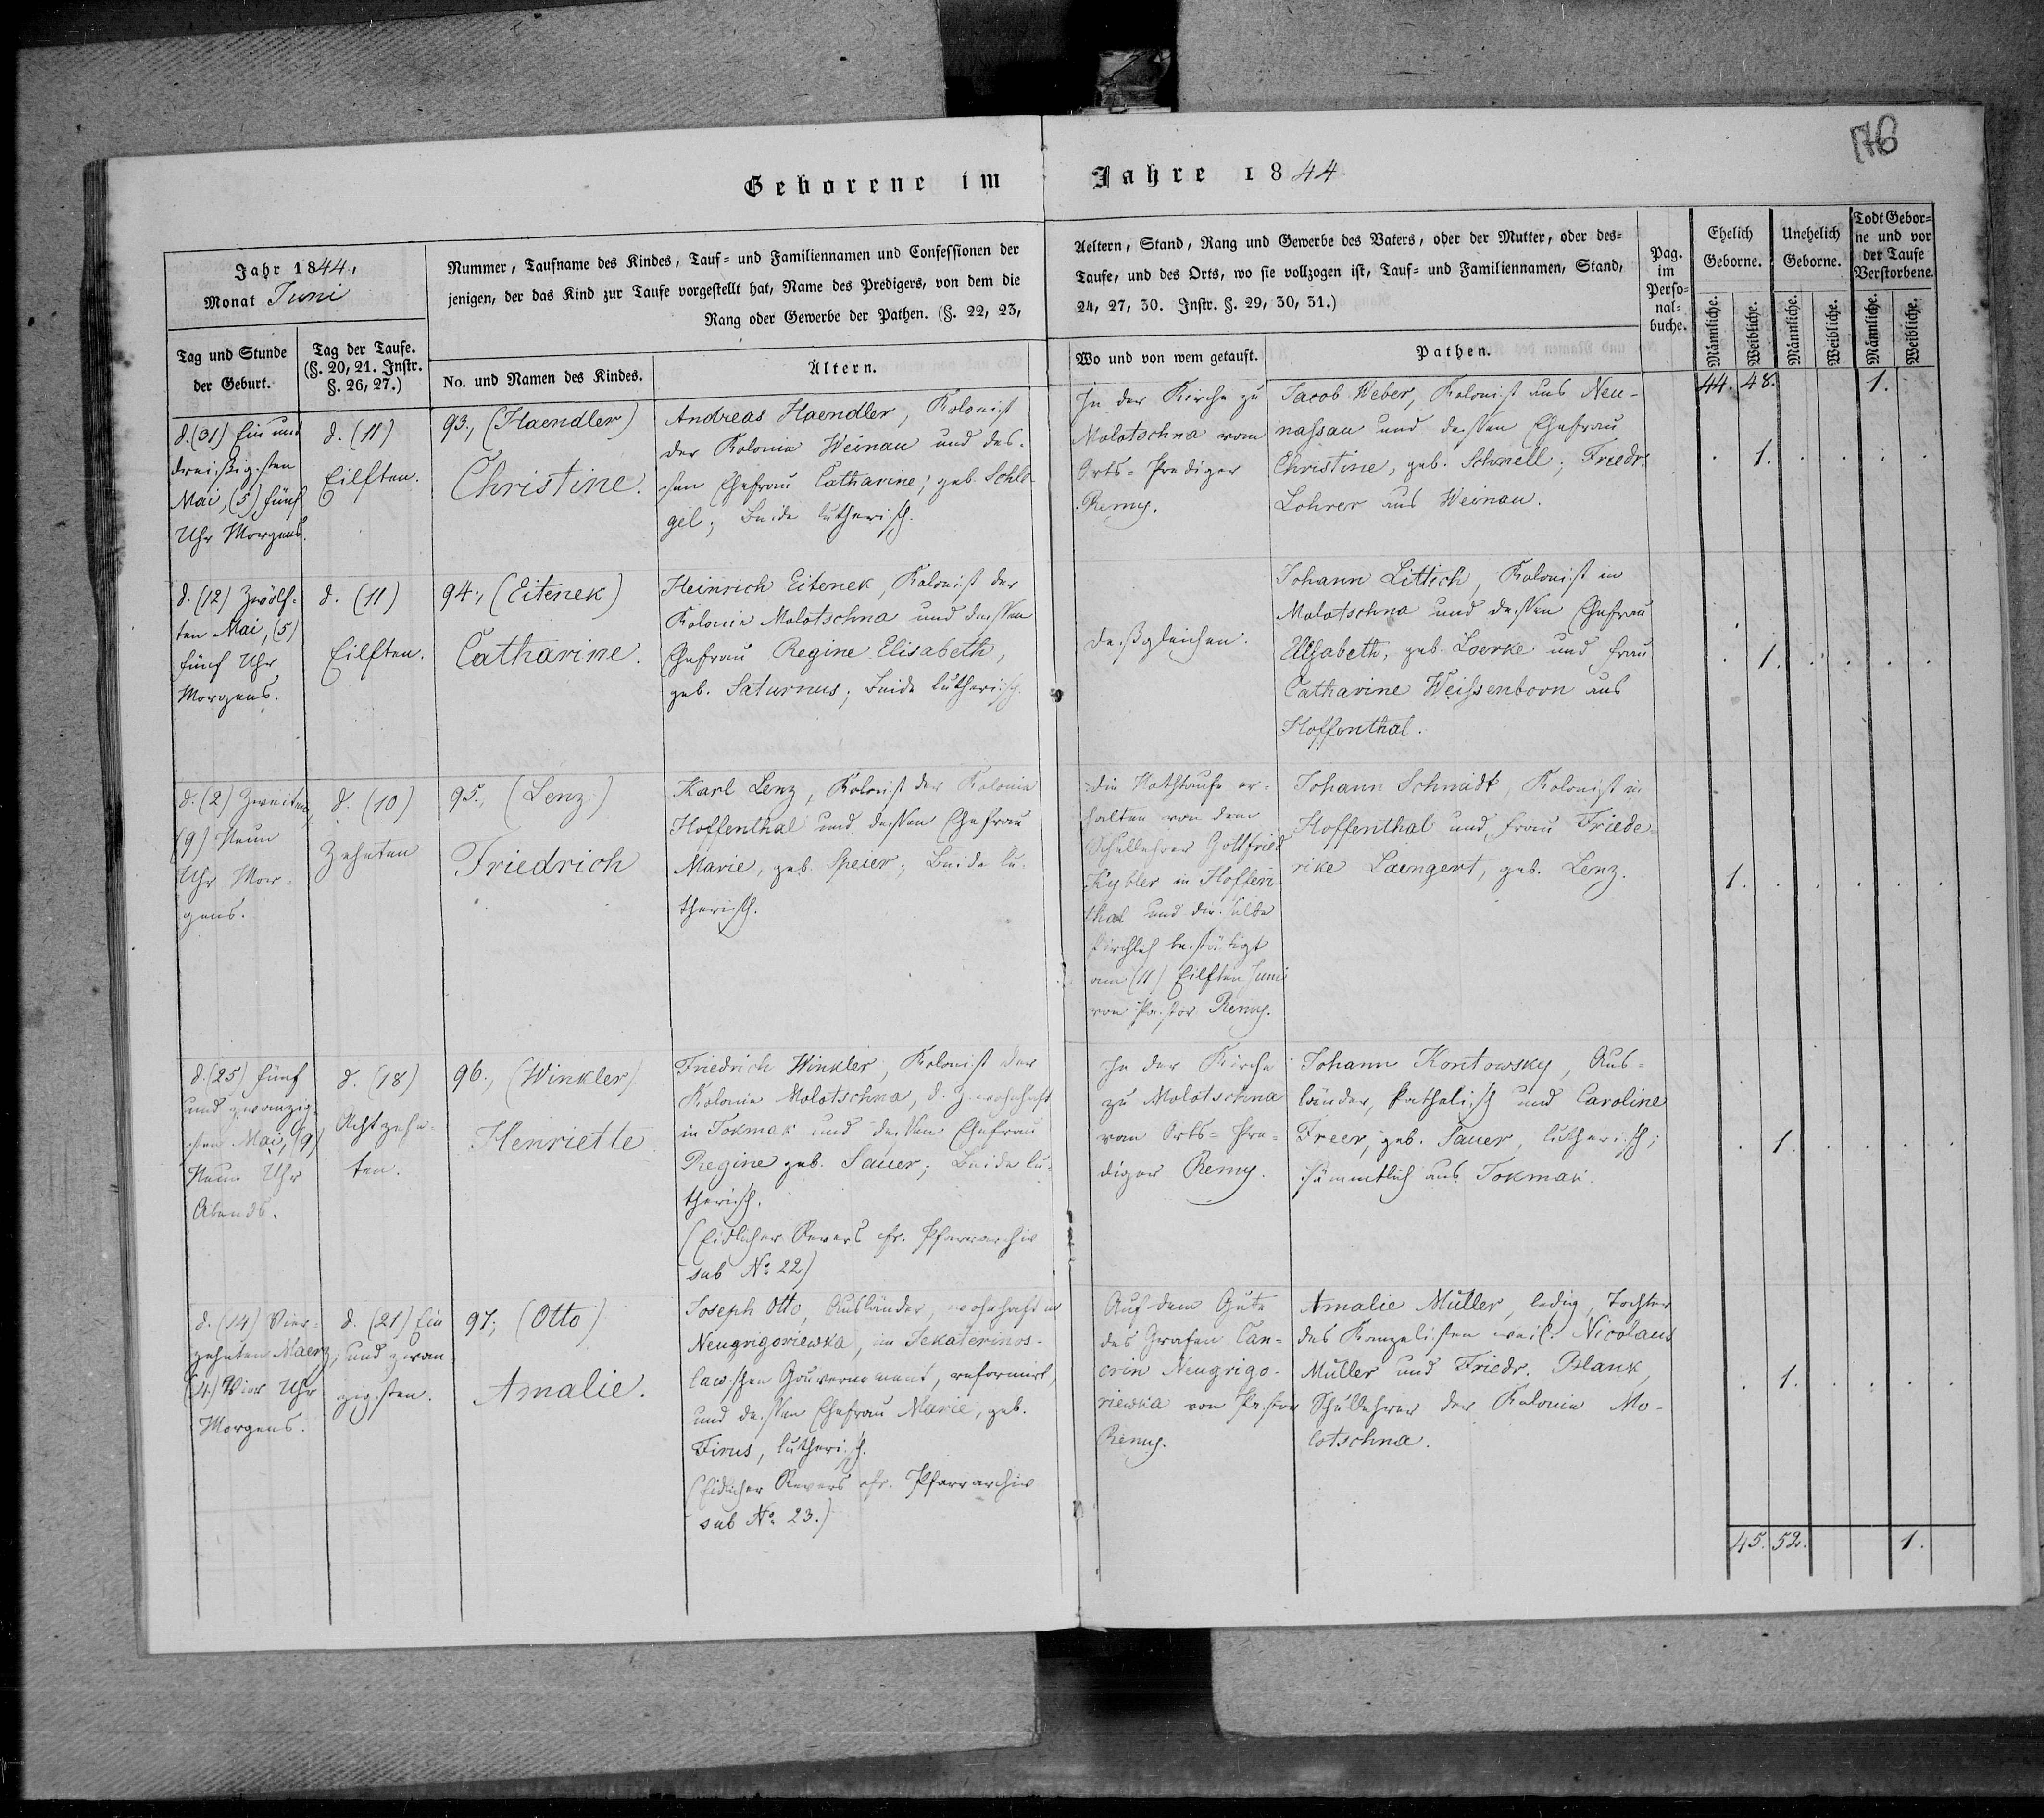 176
Geborene im Jahre 1844.
Jahr 1844,
Monat Juni
Nummer, Taufname des Kindes, Tauf- und Familiennamen und Confessionen der
jenigen, der das Kind zur Taufe vorgestellt hat, Name des Predigers, von dem die
Rang oder Gewerbe der Pathen. (§. 22, 23,
Aeltern, Stand, Rang und Gewerbe des Vaters, oder der Mutter, oder des-
Taufe, und des Orts, wo sie vollzogen ist, Tauf- und Familiennamen, Stand,
24, 27, 30. Instr. §. 29, 30, 31.)
Pag.
im
Perso-
nal-
buche.
Ehelich
Geborne.
Unehelich
Geborne.
Todt Gebor-
ne und vor
der Taufe
Verstorbene.
Männliche.
Weibliche.
Männliche.
Weibliche.
Männliche.
Weibliche.
Tag und Stunde
der Geburt.
Tag der Taufe.
(§. 20, 21. Instr.
§. 26, 27.)
No. und Namen des Kindes.
Ältern.
Wo und von wem getauft.
Pathen.
44. 48. 1.
d. (31) Ein und
dreißigsten
Mai, (5) fünf
Uhr Morgens.
d. (11)
Eilften.
93., (Haendler)
Christine.
Andreas Haendler, Kolonist
der Kolonie Weinau und des-
sen Ehefrau Catharine; geb. Schle-
gel; Beide lutherisch.
In der Kirche zu
Molotschna vom
Orts-Prediger
Remy.
Jacob Weber, Kolonist aus Neu-
nassau und dessen Ehefrau
Christine, geb. Schnell; Friedr.
Lohrer aus Weinau.
1.
d. (12) Zwölf-
ten Mai, (5)
fünf Uhr
Morgens.
d. (11)
Eilften.
94., (Eitenek)
Catharine.
Heinrich Eitenek, Kolonist der
Kolonie Molotschna und dessen
Ehefrau Regine Elisabeth,
geb. Saturnus; Beide lutherisch.
deßgleichen.
Johann Littich, Kolonist in
Molotschna und dessen Ehefrau
Elisabeth, geb. Loerke und Frau
Catharine Weißenborn aus
Hoffenthal.
1.
d. (2) Zweiten,
(9) Neun
Uhr Mor-
gens.
d. (10)
Zehnten
95., (Lenz)
Friedrich
Karl Lenz, Kolonist der Kolonie
Hoffenthal und dessen Ehefrau
Marie, geb. Speier; Beide lu-
therisch.
Die Nothtaufe er-
halten von dem
Schullehrer Gottfried
Kybler in Hoffen-
thal und dieselbe
kirchlich bestätigt
am (11) Eilften Juni
von Pastor Remy.
Johann Schmidt, Kolonist in
Hoffenthal und Frau Friede-
rike Laengert, geb. Lenz.
1.
d. (25) fünf
und zwanzig-
sten Mai, (9)
Neun Uhr
Abends.
d. (18)
Achtzehn-
ten.
96., (Winkler)
Henriette
Friedrich Winkler, Kolonist der
Kolonie Molotschna, d. Z. wohnhaft
in Tokmak und dessen Ehefrau
Regine geb. Sauer; Beide lu-
therisch.
(Eidlicher Revers cfr. Pfarrarchiv
sub No. 22)
In der Kirche
zu Molotschna
vom Orts-Pre-
diger Remy.
Johann Kontowsky, Aus-
länder, katholisch und Caroline
Freer, geb. Sauer, lutherisch;
sämmtlich aus Tokmak.
1.
d. (14) Vier-
zehnten Maerz,
(4) Vier Uhr
Morgens.
d. (21) Ein
und zwan-
zigsten.
97., (Otto)
Amalie.
Joseph Otto, Ausländer, wohnhaft in
Neugrigoriewka, im Jekaterinos-
lawschen Gouvernement, reformirt,
und dessen Ehefrau Marie, geb.
Firus, lutherisch.
(Eidlicher Revers cfr. Pfarrarchiv
sub No. 23.)
Auf dem Gute
des Grafen Can-
crin Neugrigo-
riewka von Pastor
Remy.
Amalie Müller, ledig, Tochter
des Kanzelisten weil. Nicolaus
Müller und Friedr. Blank,
Schullehrer der Kolonie Mo-
lotschna.
1.
45. 52. 1.